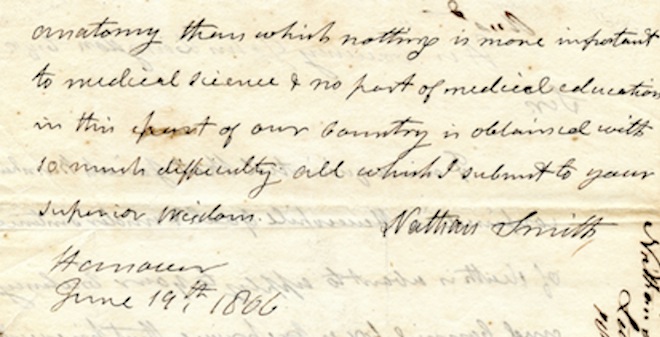 anatomy than which nothing is more important
to medical science & no part of medical education
in this part of our Country is obtained with
so much difficulty all which I submit to your
superior wisdom.
Nathan Smith
Hanover
June 19th 1806
Nathan